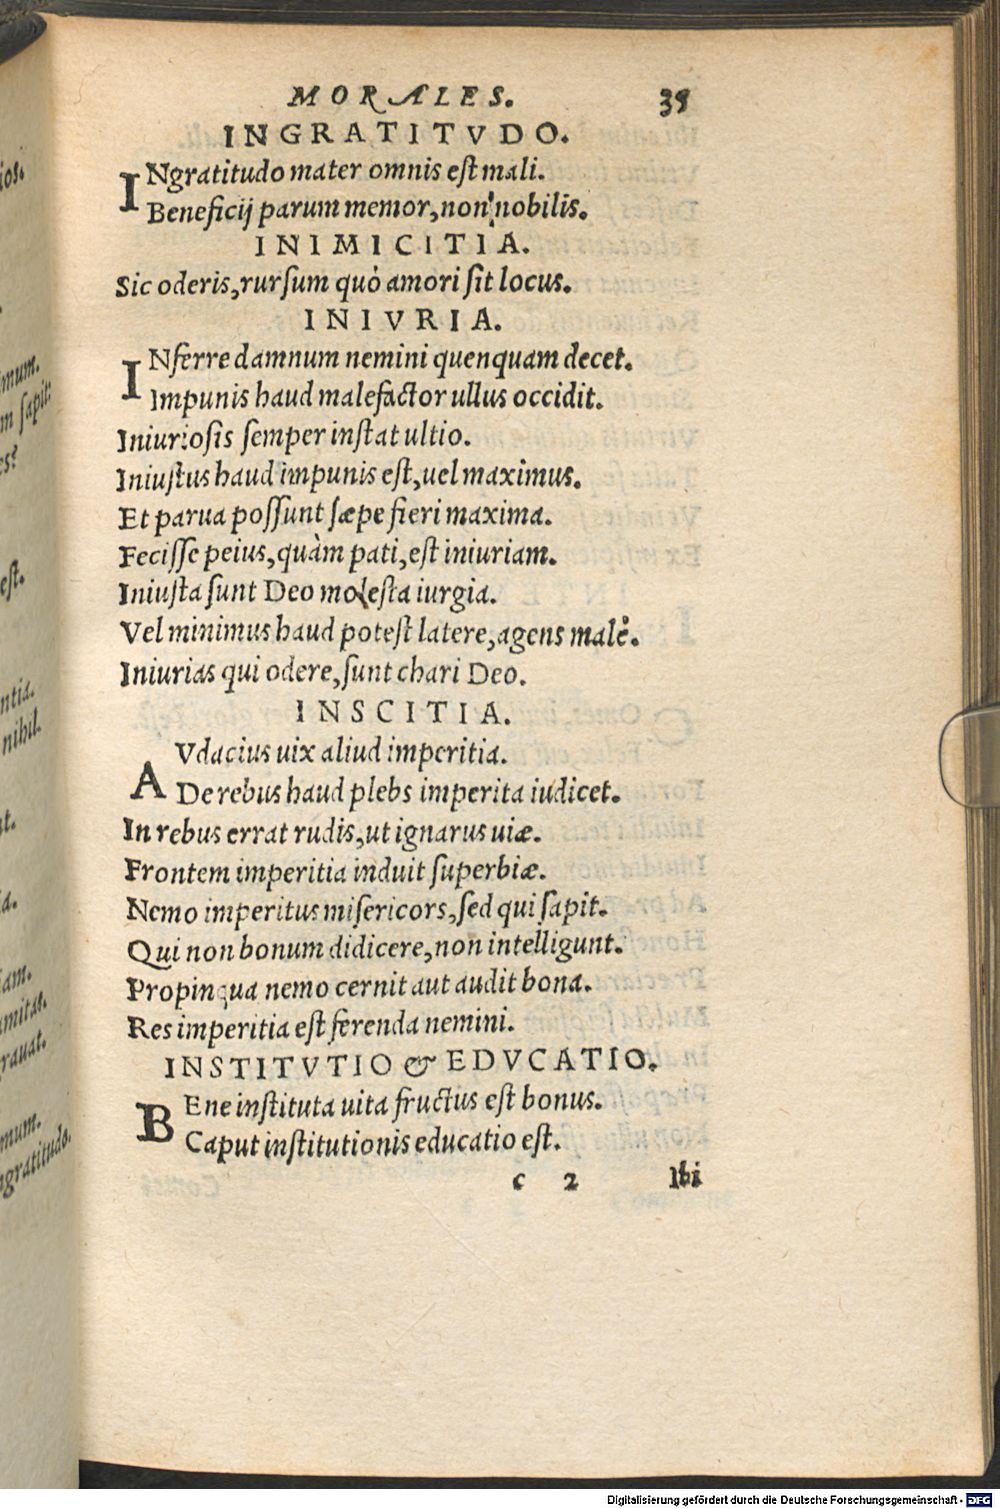 MORALES. 35
INGRATITVDO.
INgratitudo mater omnis est mali.
Beneficij parum memor, non nobilis.
INIMICITIA.
Sic oderis, rursum quò amori sit locus.
INIVRIA.
INferre damnum nemini quenquam decet.
Impunis haud malefactor ullus occidit.
Iniuriosis semper instat ultio.
Iniustus haud impunis est, uel maximus.
Et parua possunt sæpe fieri maxima.
Fecisse peius, quàm pati, est iniuriam.
Iniusta sunt Deo molesta iurgia.
Vel minimus haud potest latere, agens malè.
Iniurias qui odere, sunt chari Deo.
INSCITIA.
AVdacius uix aliud imperitia.
De rebus haud plebs imperita iudicet.
In rebus errat rudis, ut ignarus uiæ.
Frontem imperitia induit superbiæ.
Nemo imperitus misericors, sed qui sapit.
Qui non bonum didicere, non intelligunt.
Propinqua nemo cernit aut audit bona.
Res imperitia est ferenda nemini.
INSTITVTIO & EDVCATIO.
BEne instituta uita fructus est bonus.
Caput institutionis educatio est.
c 2 Ibi
ios.
imum.
m sapit:
est.
ntia.
nihil.
iam.
rauat.
mum.
ngratitudo.
Digitalisierung gefördert durch die Deutsche Forschungsgemeinschaft - DFG